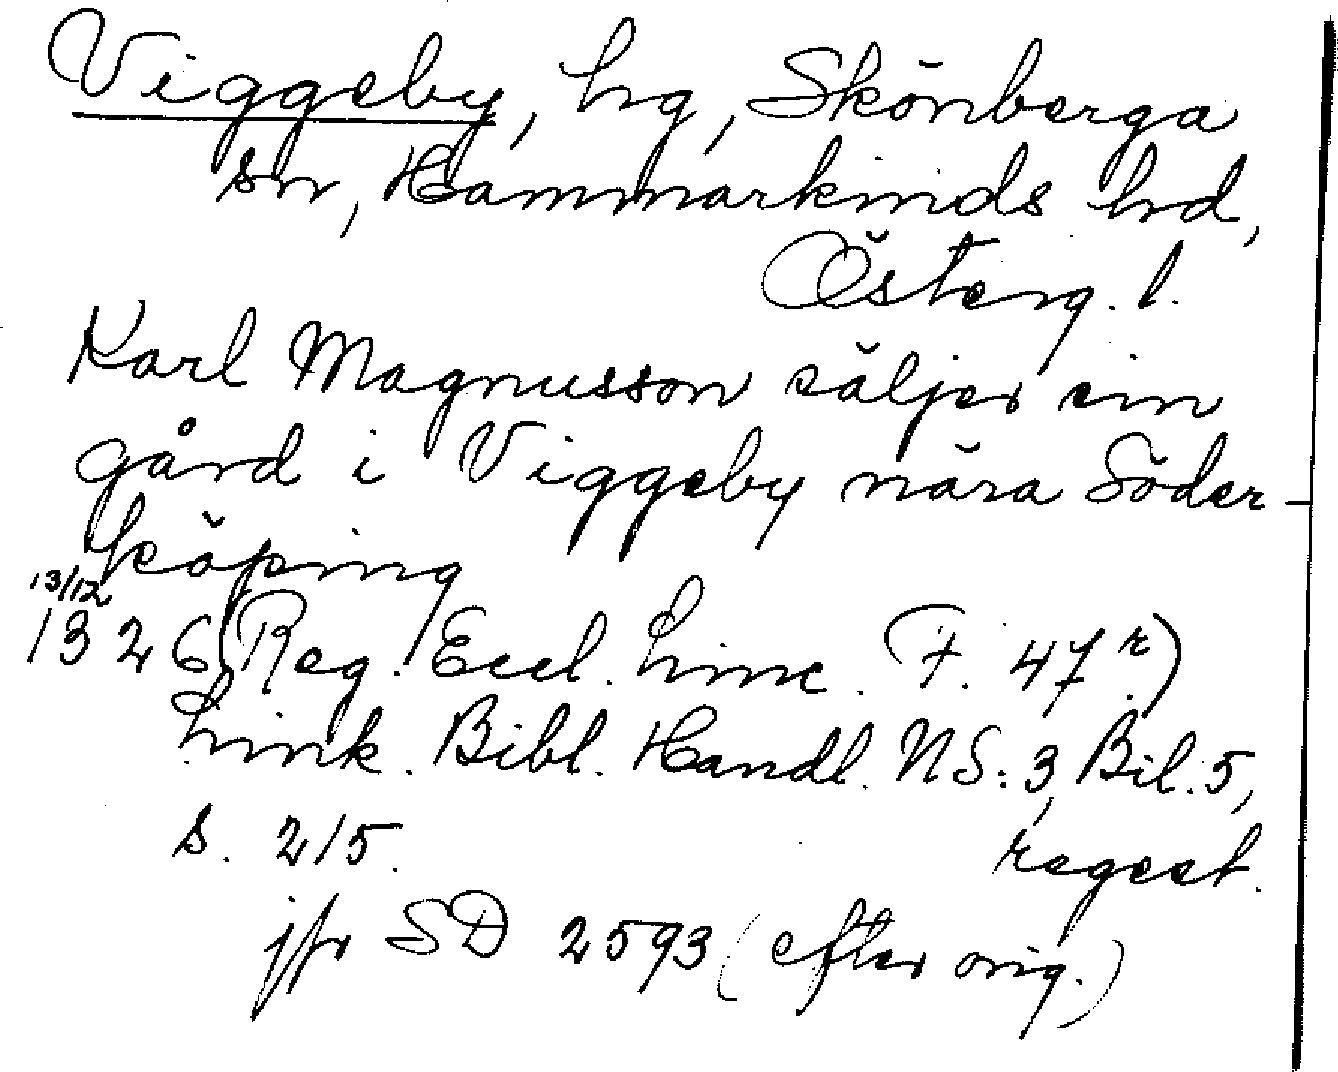 Viggeby, hg, Skönberga
sn, Hammarkinds hd,
Österg. l.
Karl Magnusson säljer sin
gård i Viggeby nära Söder-
köping
13/12
1326 (Reg. Eccl. Linc. F. 47 r)
Link. Bibl. Handl. NS: 3, Bil. 5,
s. 215. regest.
jfr SD 2593 (efter orig.)